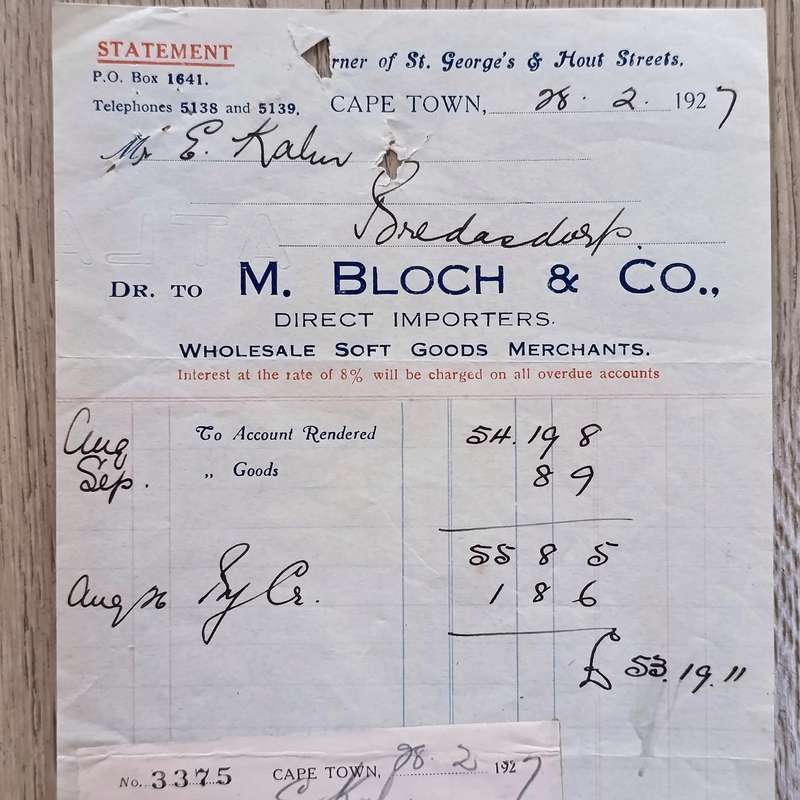 STATEMENT
rner of St. George's & Hout Streets.
P.O. Box 1641.
Telephones 5138 and 5139.
CAPE TOWN, 28.2.1927
Mr E. Kahn
Bredasdorp.
DR. TO M. BLOCH & CO.,
DIRECT IMPORTERS.
WHOLESALE SOFT GOODS MERCHANTS.
Interest at the rate of 8% will be charged on all overdue accounts
Aug To Account Rendered 54. 19 8
Sep. „ Goods 8 9
55 8 5
Aug 26 By Cr. 1 8 6
£ 53. 19. 11
No. 3375 CAPE TOWN, 28.2 1927